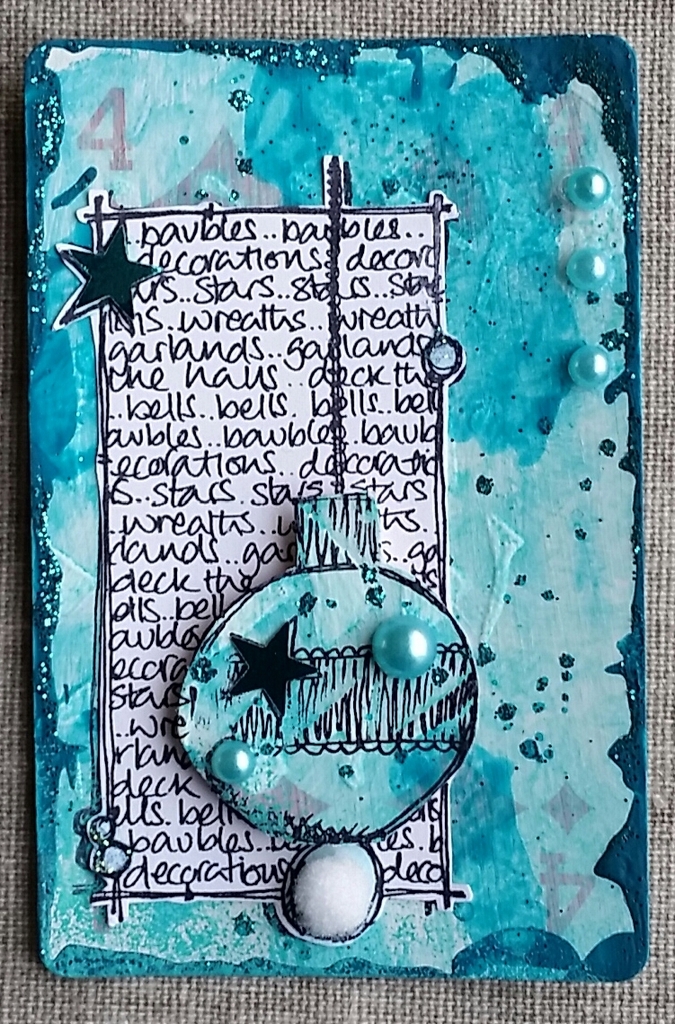 4
..baubles..baubles..
decorations..decor
ars..stars..stars..sta
..wreaths..wreath
garlands..garlands
the halls..deck the
..bells..bells..bells..bel
aubles..baubles..baub
ecorations..decoratio
s..stars..stars..stars
..wreaths ths.
rlands..gar ga
deck the
ells..bell
baubles
ecora
stars
..wre
rland
deck
ells..bells
baubles es..b
decorations deco
4